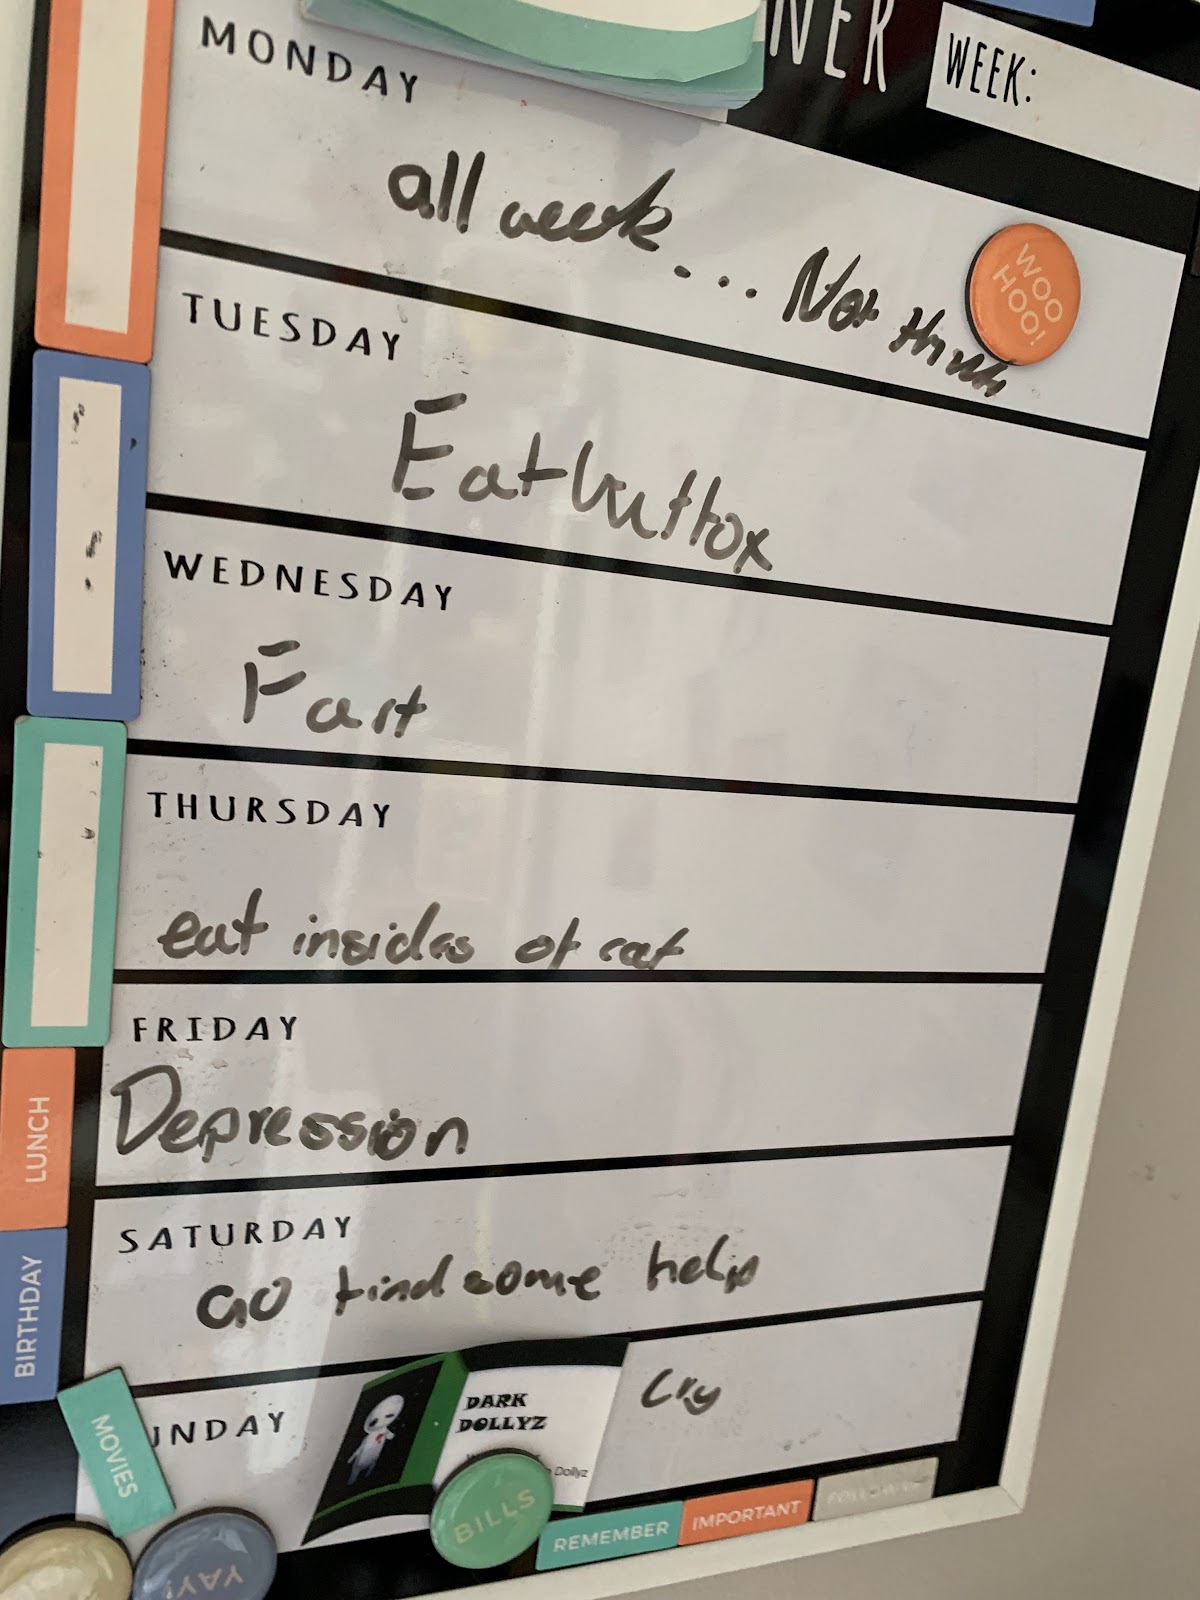 NER
WEEK:
MONDAY
all week... Not think
WOO
HOO!
TUESDAY
Eat buttox
WEDNESDAY
Fart
THURSDAY
eat insides of cat
FRIDAY
Depression
LUNCH
SATURDAY
Go find some help
BIRTHDAY
UNDAY
Cry
DARK
DOLLYZ
Dollyz
MOVIES
BILLS
YAY!
REMEMBER
IMPORTANT